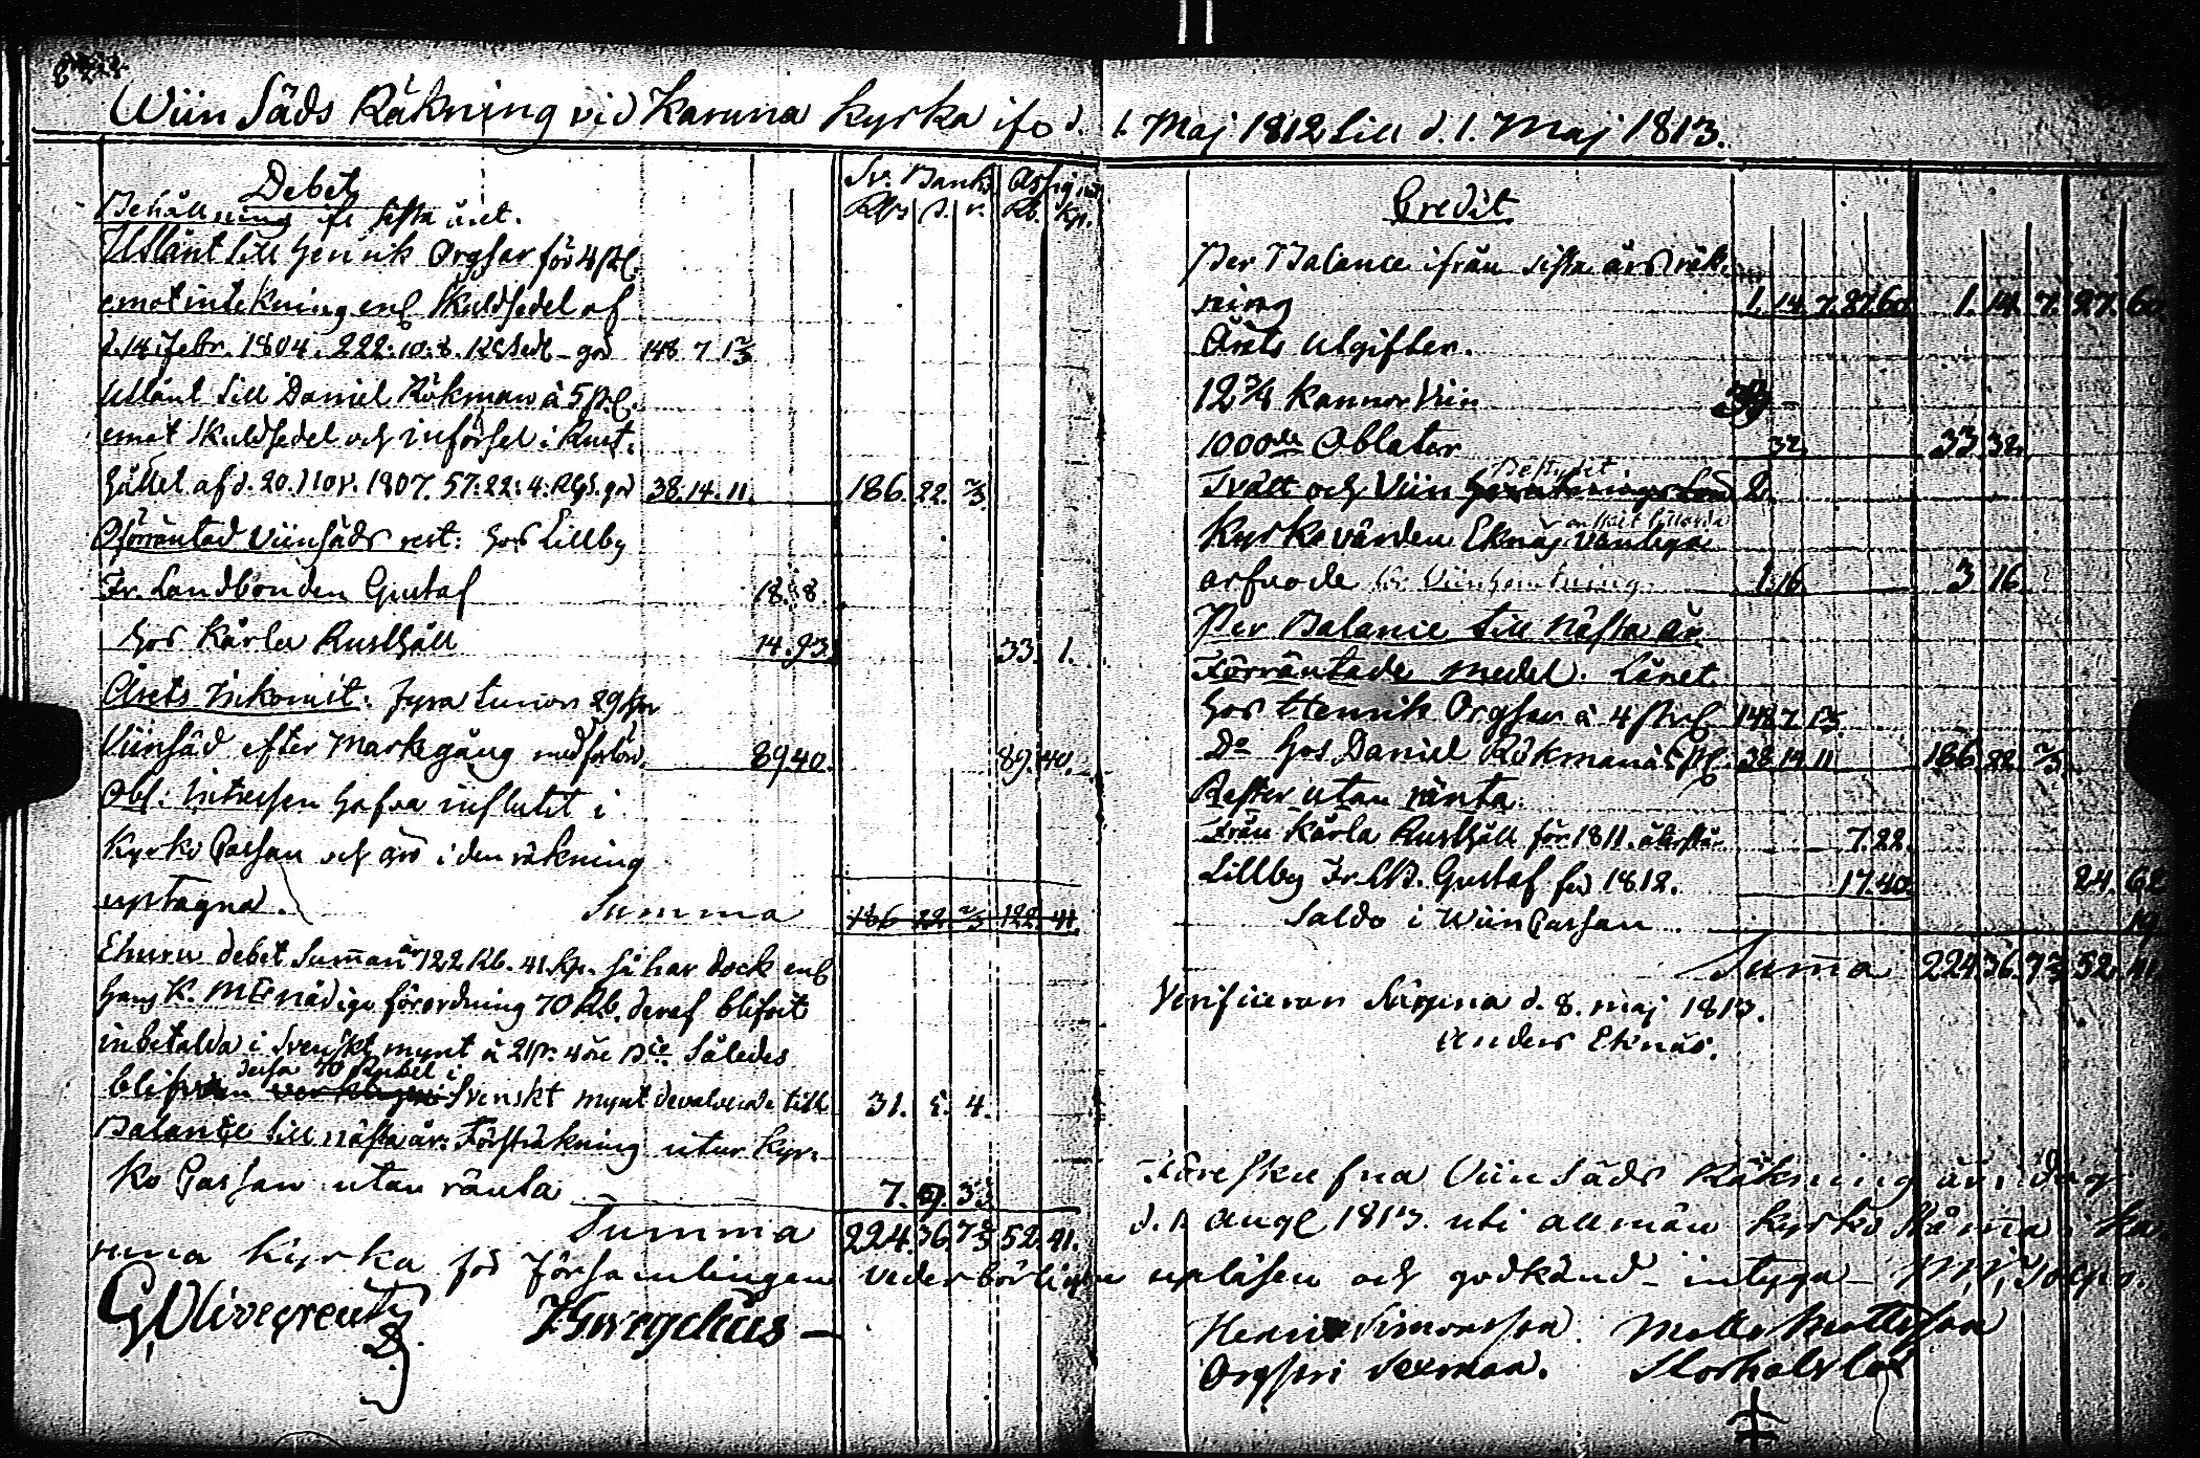 Wiin Säds Räkning vid Karuna Kyrka ifr d. 1. Maj 1812 till d. 1. Maj 1813.
Debet
Sv. Banko Assign.
Rdr s. r. Rb. Kp.
Behållning ifr sista året.
Utlånt till Henrik Orgsar för 4 pC.
emot intekning enl Skuldsedel af
d. 14 Febr. 1804. 222: 10: 8. RGSedl - gör 148 7 1 2/3
Utlånt till Daniel Rökman à 5 pC.
emot Skuldsedel och införsel i Rust-
hållet af d. 20. Nov. 1807. 57: 22: 4. RGS. gör 38. 14. 11. 186. 22. 2/3
Oförräntad Viinsäds rest: hos Lillby
Fr. Landbonden Gustaf 18. 8
hos Kärla Rusthåll 14. 93. 33. 1.
Årets Inkomst. Fyra tunnor 29 kpr
Viinsäd efter Markegång 89. 40. 89. 40.
Obs: Intressen hafva influtit i
Kyrko Cassan och äro i den räkning
uptagna. Summa 186 22 2/3 122. 41.
Ehuru debet Summan är 122 Rb. 41 Kp. så har dock enl
Hans K. M:ts nådiga förordning 70 Rb. deraf blifvit
inbetalda i Svenskt mynt à 21 s. 4 öre B:co Således
blifvit dessa 70 Rubel i Svenskt mynt devalverade till 31. 5. 4.
Balance till nästa år: Försträkning utur Kyr-
ko Cassan utan ränta 7. 9. 3
Summa 224. 36. 7 2/3 52. 41.
Credit
Per Balance ifrån sista års räk-
ning 1. 14. 7. 27. 60. 1. 14. 7. 27. 60
Årets Utgifter.
12 3/4 Kannor Viin
1000de Oblater 32. 33 32.
Tvätt och Viin 2.
Kyrkovärden Eknäs
arfvode för Viinhemtning 1. 16. 3 16.
Per Balance till nästa år
Förräntade medel. Lånet
hos Henrik Orgsar à 4 pC. 148 7 1 2/3
D:o hos Daniel Rökman à 5 pC. 38 14 11 186. 22. 2/3
Rester utan ränta.
Från Kärla Rusthåll för 1811. återstår 7. 22.
Lillby Fr. LB. Gustaf för 1812. 17. 40. 24. 62
Saldo i Wiin Cassan 19
Summa 224. 36. 7 2/3 52. 41
Verificeras Karuna d. 8. maj 1813.
Anders Eknäs.
Föreskrefna Viin Säds Räkning är i dag
d. 1 Aug 1813. uti allmän Kyrko Stämma i Ka-
runa Kyrka för Församlingen vederbörligen upläsen och godkänd - intyga
G, Olivecreutz
Henric Simonsson Matts Mattsson
Orgsari Sexman. Storhalsby